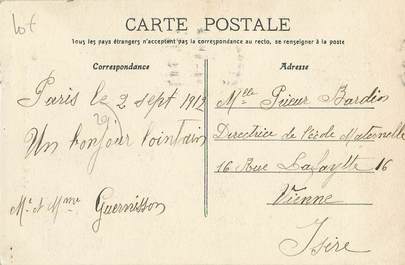 lot
CARTE POSTALE
Tous les pays étrangers n'acceptent pas la correspondance au recto, se renseigner à la poste
Correspondance
Paris le 2 Sept 1912
Un bonjour lointain
Mr et Mme Guernisson
Adresse
Melle Prieur Bardin
Directrice de l'école Maternelle
16 Rue Lafaytte 16
Vienne
Isère